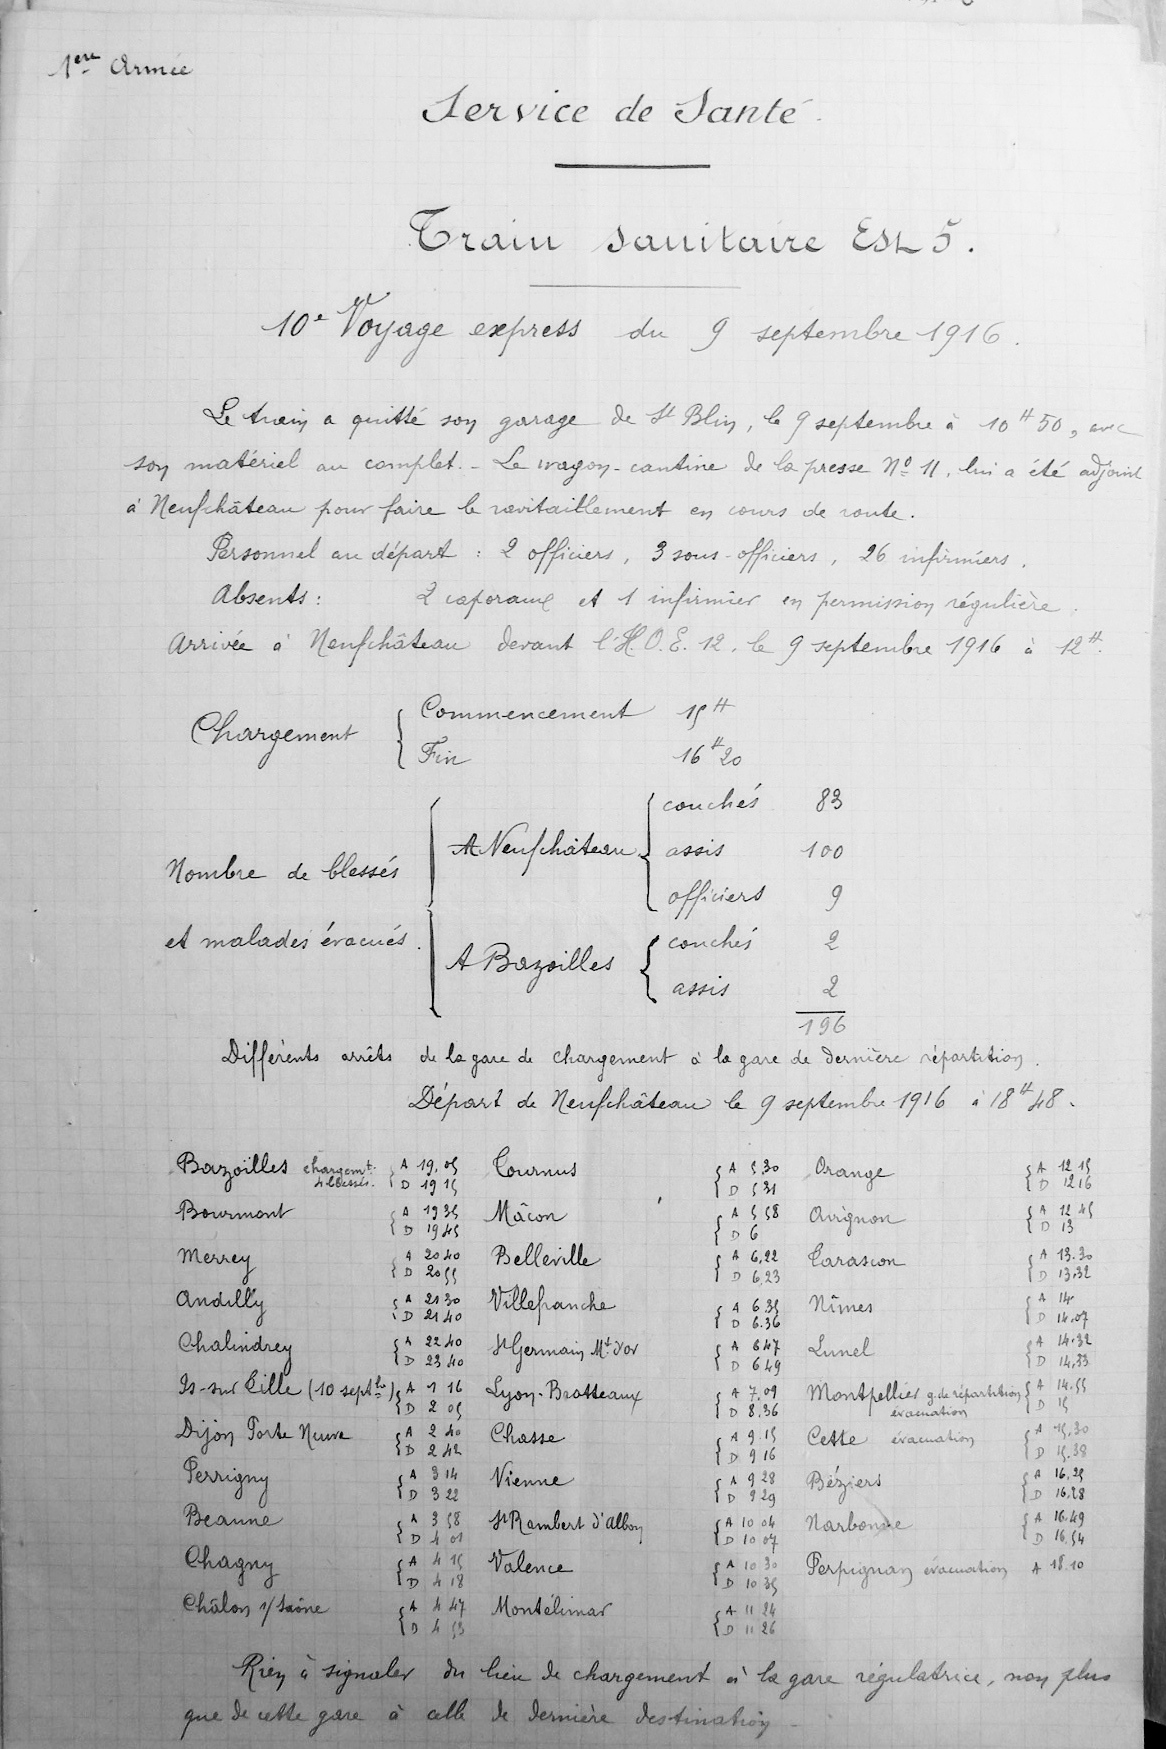 1ère Armée
Service de Santé
Train sanitaire Est 5.
10e Voyage express du 9 septembre 1916.
Le train a quitté son garage de St Blin, le 9 septembre à 10H50, avec
son matériel au complet. - Le wagon-cantine de la presse No 11, lui a été adjoint
à Neufchâteau pour faire le ravitaillement en cours de route.
Personnel au départ : 2 officiers, 3 sous-officiers, 26 infirmiers.
Absents : 2 caporaux et 1 infirmier en permission régulière.
Arrivée à Neufchâteau devant l'H.O.E. 12, le 9 septembre 1916 à 12H.
Chargement { Commencement 15H
Fin 16H20
Nombre de blessés et malades évacués.
A Neufchâteau { couchés 83
assis 100
officiers 9
A Bazoilles { couchés 2
assis 2
196
Différents arrêts de la gare de chargement à la gare de dernière répartition.
Départ de Neufchâteau le 9 septembre 1916 à 18H48.
Bazoilles chargemt. 4 blessés. { A 19,05 D 19 15 Tournus { A 5,30 D 5 31 Orange { A 12 15 D 12 16
Bourmont { A 19 35 D 19 45 Mâcon { A 5 58 D 6 Avignon { A 12 45 D 13
Merrey { A 20 40 D 20 55 Belleville { A 6,22 D 6,23 Tarascon { A 13.30 D 13.32
Andilly { A 21 30 D 21 40 Villefranche { A 6.35 D 6.36 Nîmes { A 14 D 14.07
Chalindrey { A 22 40 D 23 40 St Germain Mt d'or { A 6 47 D 6 49 Lunel { A 14.32 D 14.33
Is-sur Tille (10 septbre) { A 1 16 D 2 05 Lyon-Brotteaux { A 7,09 D 8,36 Montpellier g. de répartition évacuation { A 14.55 D 15
Dijon Porte Neuve { A 2 40 D 2 42 Chasse { A 9.15 D 9 16 Cette évacuation { A 15,30 D 15.38
Perrigny { A 3 14 D 3 22 Vienne { A 9 28 D 9 29 Béziers { A 16,25 D 16.28
Beaune { A 3 58 D 4 01 St Rambert d'Albon { A 10 04 D 10 07 Narbonne { A 16.49 D 16.54
Chagny { A 4 15 D 4 18 Valence { A 10 30 D 10 35 Perpignan évacuation A 18.10
Châlon s/Saône { A 4 47 D 4 53 Montélimar { A 11 24 D 11 26
Rien à signaler du lieu de chargement à la gare régulatrice, non plus
que de cette gare à celle de dernière destination -